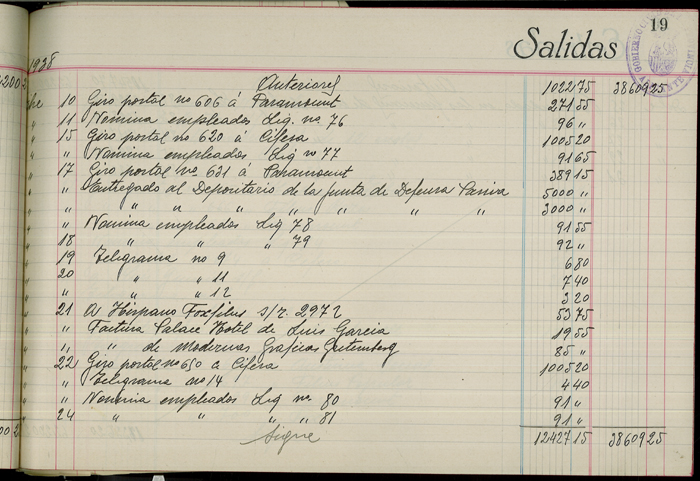 19
Salidas
1938
Anteriores 1022 75 38609 25
10 Giro postal nº 606 á Paramount 271 55
11 Nomina empleados Liq. nº 76 96 "
15 Giro postal nº 620 á Cifesa 1005 20
" Nomina empleados Liq nº 77 91 65
17 Giro postal nº 631 á Paramount 389 15
" Entregado al Depositario de la Junta de Defensa Pasiva 5000 "
" " " " " " " " 3000 "
" Nomina empleados Liq 78 91 55
18 " " " 79 92 "
19 Teligrama nº 9 6 80
20 " " 11 7 40
" " " 12 3 20
21 A Hispano Foxfilms s/r. 2972 53 75
" Factura Palace Hotel de Luis Garcia 19 55
" " de Modernas Gráficas Gutemberg 85 "
22 Giro postal nº 650 á Cifesa 1005 20
" Teligrama nº 14 4 40
" Nomina empleados Liq nº 80 91 "
24 " " " " 81 91 "
Sigue 12427 15 38609 25